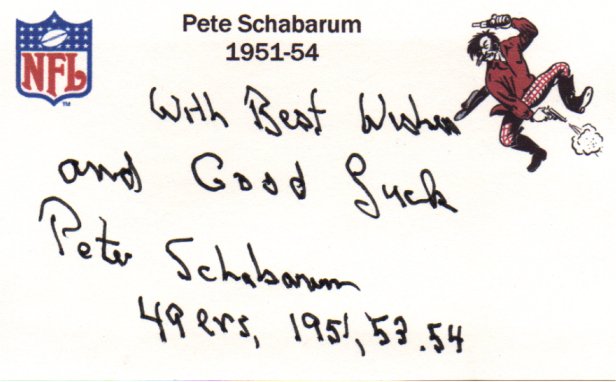 NFL
TM
Pete Schabarum
1951-54
With Best Wishes
and Good Luck
Pete Schabarum
49ers, 1951, 53.54